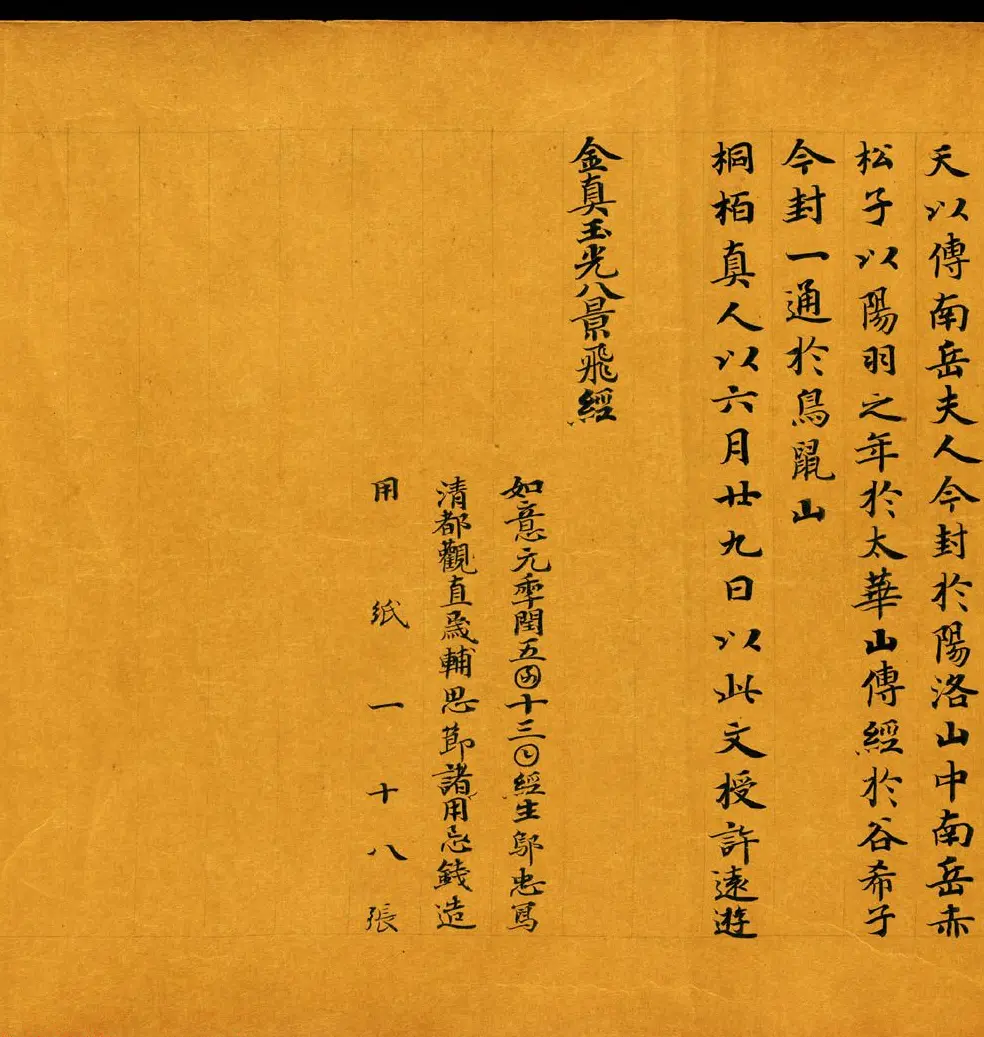 天以傳南岳夫人今封於陽洛山中南岳赤
松子以陽羽之年於太華山傳經於谷希子
今封一通於鳥鼠山
桐栢真人以六月廿九日以此文授許遠遊
金真玉光八景飛經
如意元𠡦閏五𠥱十三𡆠經生鄔忠寫
清都觀直歲輔思節諸用忌錢造
用紙一十八張